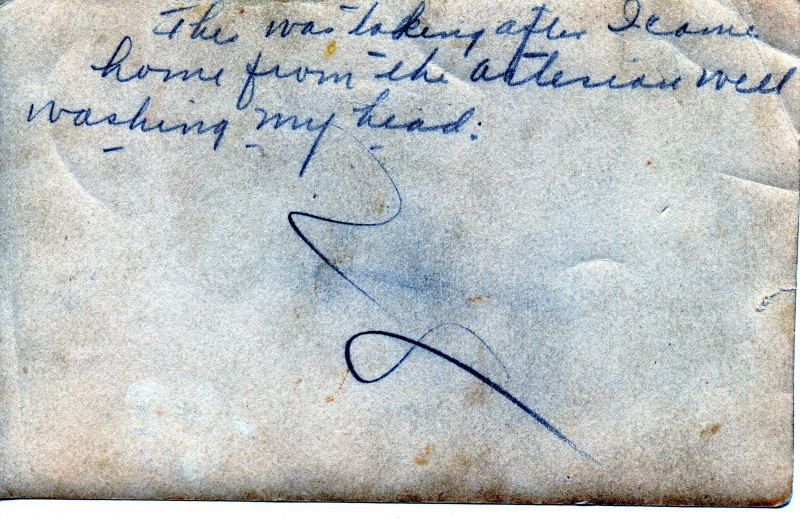 This was taking after I came
home from the artesian well
washing my head.